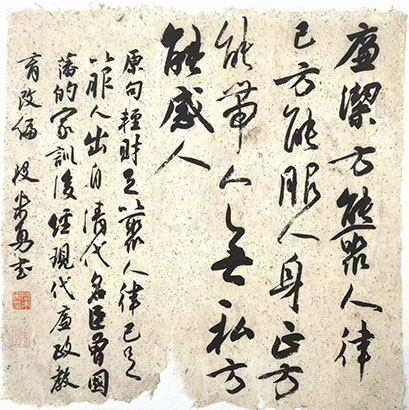 廉潔方能聚人律
己方能服人身正方
能帶人無私方
能感人
原句輕財足以聚人律己足
以服人出自清代名臣曾國
藩的家訓後經現代廉政教
育改编 段